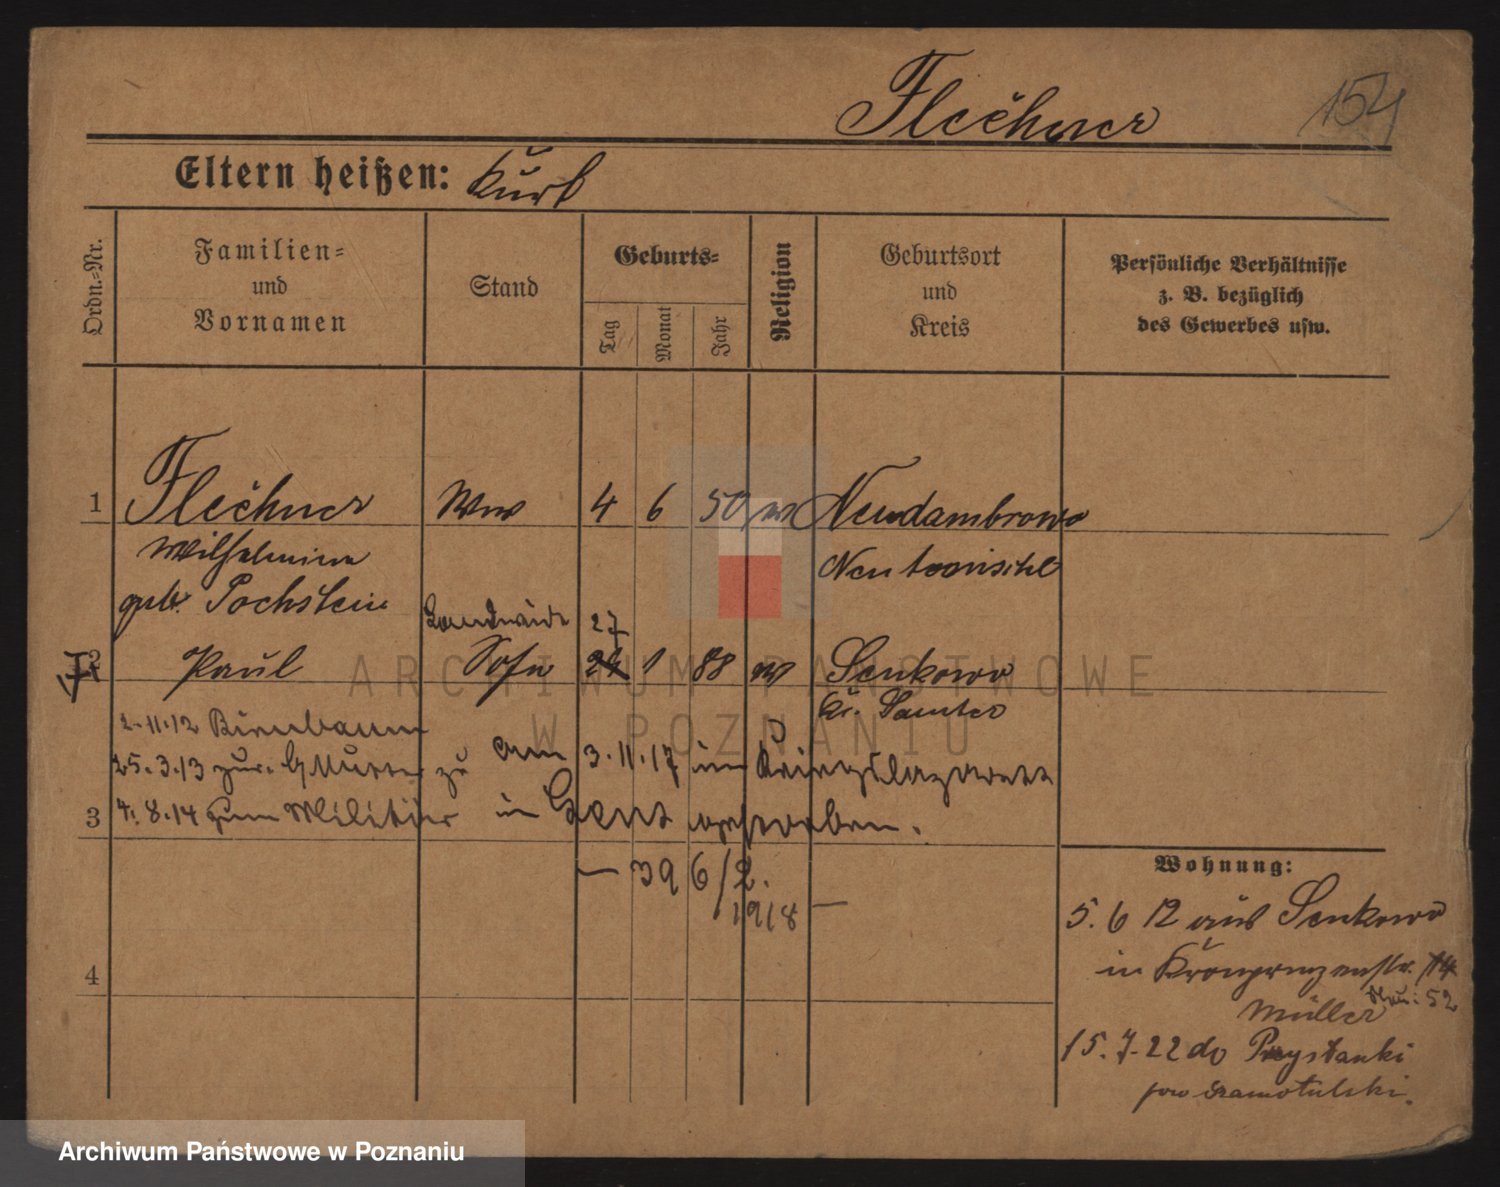 Flechner
154
Eltern heißen: Kurt
Ordn.-Nr.
Familien-
und
Vornamen
Stand
Geburts-
Tag
Monat
Jahr
Religion
Geburtsort
und
Kreis
Persönliche Verhältnisse
z. B. bezüglich
des Gewerbes usw.
1 Flechner Ww 4 6 50 Neudambrowo
Wilhelmine
Neutomischl
geb. Pochstein
27
2 Paul Sohn 24 1 88 Senkowo
Kr. Samter
2.11.12 Birnbaum
25.3.13 zur. Mutter zu
am 3.11.17 im Kriegslazarett
3 4.8.14 zum Militär
in Gent gestorben.
— 396/2.
1918 —
Wohnung:
5. 6 12 aus Senkowo
4
in Kronprinzenstr. 14
52
Müller
15. 7. 22 do Przystanki
pow Szamotulski.
ARCHIWUM PAŃSTWOWE
W POZNANIU
Archiwum Państwowe w Poznaniu